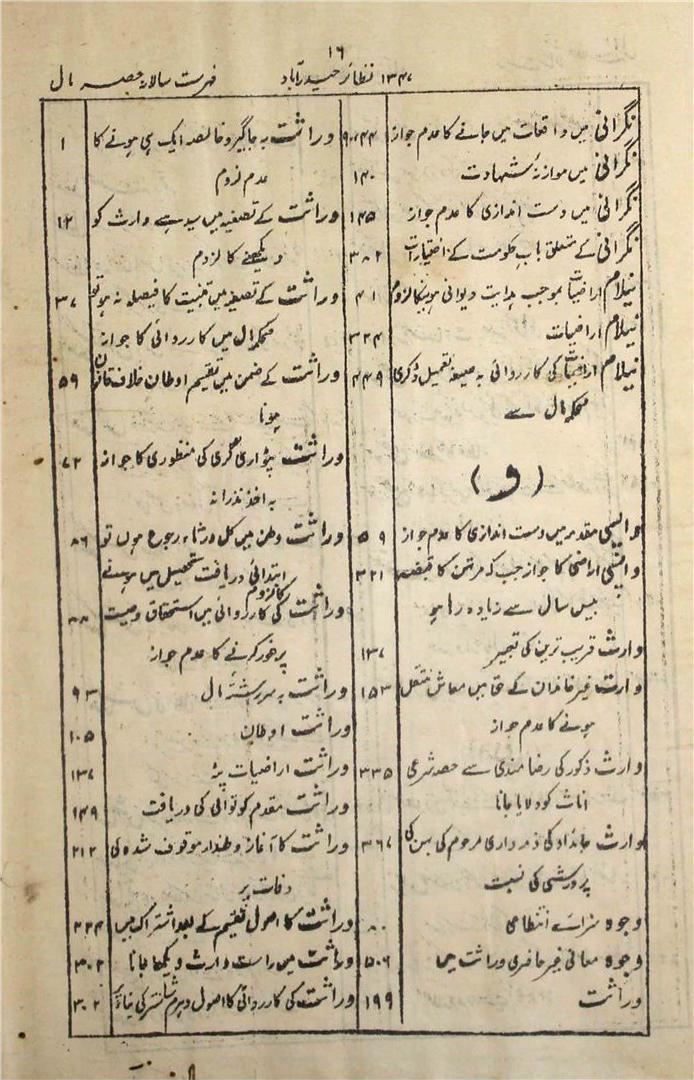 ۱۶
۱۳۴۷ نظائر حیدرآباد
فہرست سالانہ حصہ مال
نگرانی میں واقعات میں جانے کا عدم جواز ۹۰،۴۴
نگرانی میں موازنۂ شہادت ۱۴۰
نگرانی میں دست اندازی کا عدم جواز ۱۴۵
نگرانی کے متعلق باب حکومت کے اختیارات ۳۸۲
نیلام اراضیات بموجب ہدایت دیوانی ہونیکا لزوم ۴۱
نیلام اراضیات ۳۲۴
نیلام اراضیات کی کارروائی بہ صیغہ تعمیل ڈگری ۴۴۹
محکمہ مال سے
(و)
واپسی مقدمہ میں دست اندازی کا عدم جواز ۵۹
واپسی اراضی کا جواز جب کہ مرتہن کا قبضہ ۳۲۱
بیس سال سے زیادہ رہا ہو
وارث قریب ترین کی تعبیر ۱۳۷
وارث غیر خاندان کے حق میں معاش منتقل ۱۵۳
ہونے کا عدم جواز
وارث ذکور کی رضامندی سے حصہ شرعی ۳۳۵
اناث کو دلایا جانا
وارث جائداد کی ذمہ داری مرحوم کی بہن کی ۳۶۷
پرورش کی نسبت
وجوہ سزائے انتظامی ۸۰
وجوہ معافی غیر حاضری وراثت میں ۵۰۶
وراثت ۱۹۹
وراثت بہ جاگیر و خالصہ ایک ہی ہونے کا ۱
عدم لزوم
وراثت کے تصفیہ میں سب سے وارث کو ۱۲
دیکھنے کا لزوم
وراثت کے تصفیہ میں تبنیت کا فیصلہ نہ ہو تو ۳۷
محکمہ مال میں کارروائی کا جواز
وراثت کے ضمن میں تقسیم اوطان خلاف قانون ۵۹
ہونا
وراثت پٹواری گری کی منظوری کا جواز ۷۲
بہ اخذ نذرانہ
وراثت وطن میں کل ورثاء رجوع ہوں تو ۸۶
ابتدائی دریافت تحصیل میں ہونے کا لزوم
وراثت کی کارروائی میں استحقاق وصیت ۸۸
پر غور کرنے کا عدم جواز
وراثت بہ سررشتۂ مال ۹۳
وراثت اوطان ۱۰۵
وراثت اراضیات پٹہ ۱۳۷
وراثت مقدم کوتوالی کی دریافت ۱۴۹
وراثت کا آغاز وطندار موقوف شدہ کی ۲۱۲
وفات پر
وراثت کا اصول تقسیم کے بعد اشتراک میں ۲۲۴
وراثت میں راست وارث دیکھا جانا ۳۰۲
وراثت کی کارروائی کا اصول دہرم شاستر کی بناء پر ۳۰۲